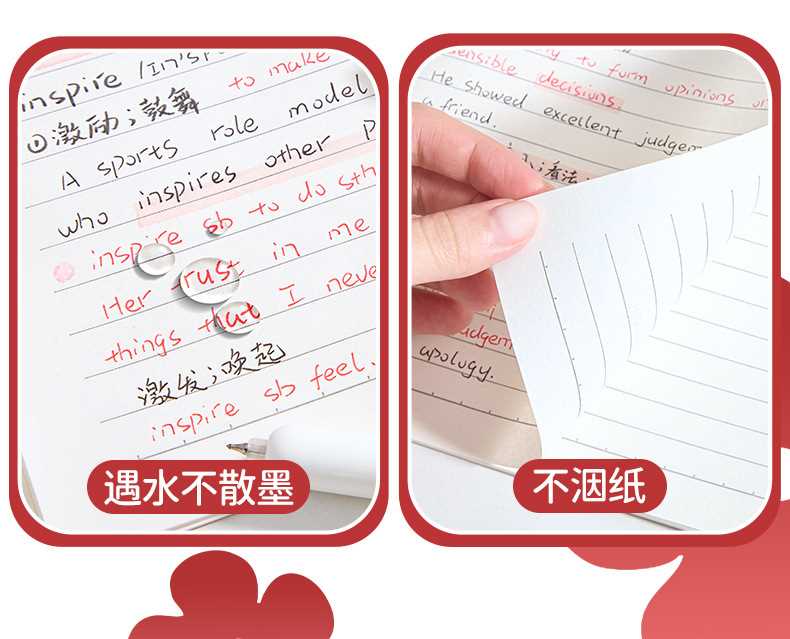 inspire /In'sp
①激励；鼓舞 to make
A sports role model
who inspires other p
inspire sb to do sth
Her trust in me
things that I neve
激发；唤起
inspire sb feel.
遇水不散墨
ensible decisions.
to form opinions or
He showed excellent judgem
a friend.
看法
udgem
apology.
不洇纸